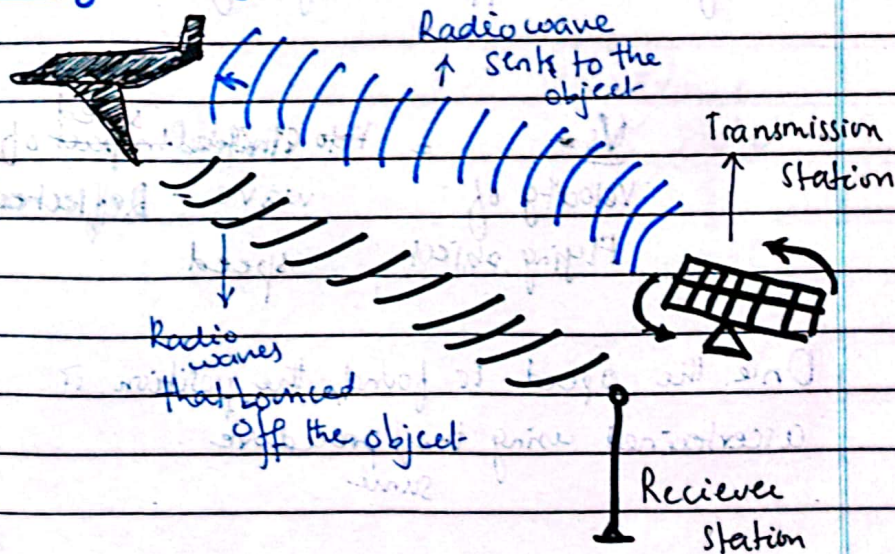 Radio wave
sent to the
object
Transmission
Station
Radio
waves
that bounced
off the object
Reciever
Station